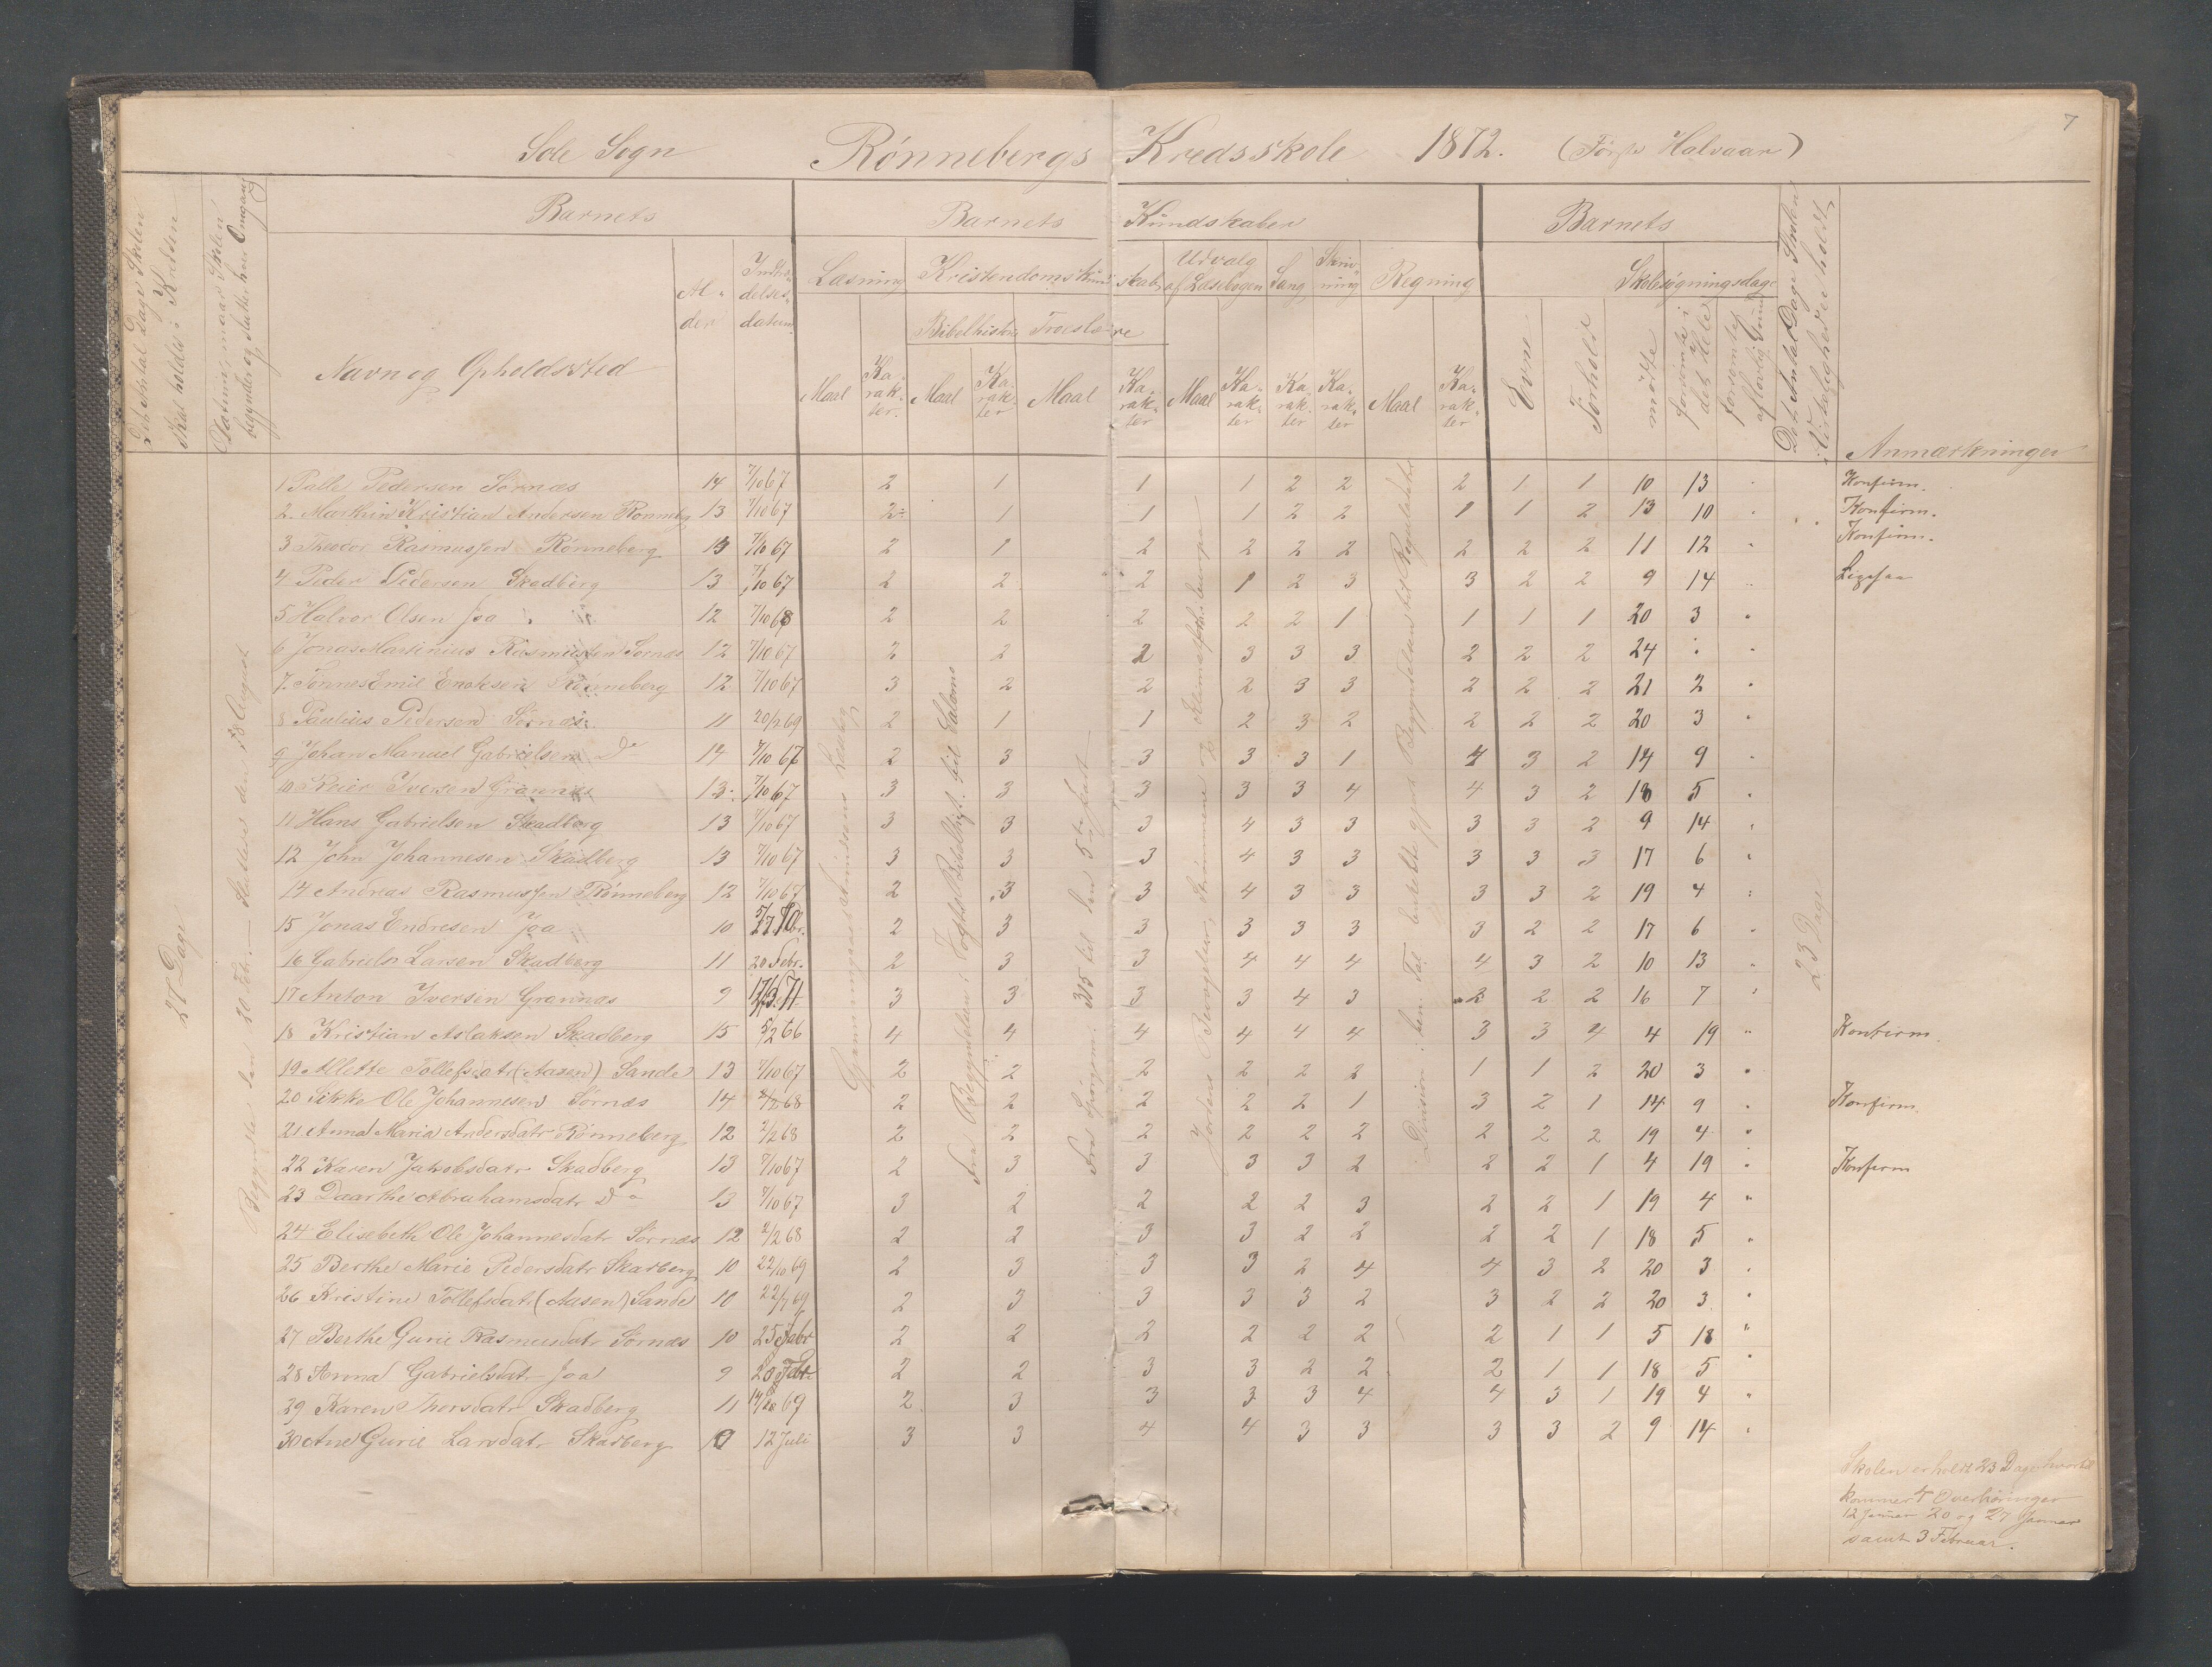 7
Sole Sogn Rønnebergs Kredsskole 1872. (Første Halvaar)
Det Antal Dage Skolen skal holdes i Kredsen
Datumet naar Skolen begynder og slutter hver Omgang
Barnets
Barnets Kundskaber
Barnets
Navn og Opholdssted
Al-der
Indtrædelses-datum
Læsning
Kristendomskundskab
Udvalg af Læsebogen
Sang
Skrivning
Regning
Bibelhistorie
Troeslære
Maal Karakter. Maal Karakter Maal Karakter Maal Karakter Karakter Karakter Maal Karakter
Evne
Forhold
Skolesøgningsdage
mødte
forsømte i det Hele
forsømte af lovlig Grund
Det Antal Dage Skolen i Virkeligheden holdt
Anmærkninger
1 Palle Pedersen Sørnæs 14 7/10 67 2 1 1 1 2 2 2 1 1 10 13 Konfirm.
2. Martin Kristian Andersen Rønneberg 13 7/10 67 2 1 1 1 2 2 1 1 2 13 10 Konfirm.
3 Theodor Rasmussen Rønneberg 13 7/10 67 2 1 2 2 2 2 2 2 2 11 12 Konfirm.
4 Peder Pedersen Skadberg 13 7/10 67 2 2 2 1 2 3 3 2 2 9 14 Ligesaa
5 Halvor Olsen Joa 12 7/10 68 2 2 2 2 2 1 1 1 1 20 3
6 Jonas Martinius Rasmussen Sørnæs 12 7/10 67 2 2 2 3 3 3 2 2 2 24
7. Tønnes Emil Enoksen Rønneberg 12 7/10 67 3 2 2 2 3 3 2 2 2 21 2
8 Paulius Pedersen Sørnæs 11 20/2 69 2 1 1 2 3 2 2 2 2 20 3
9 Johan Manuel Gabrielsen Do 14 7/10 67 2 3 3 3 3 1 4 3 2 14 9
10 Reier Iversen Grannæs 13 7/10 67 3 3 3 3 3 4 4 3 2 18 5
11 Hans Gabrielsen Skadberg 13 7/10 67 3 3 3 4 3 3 3 3 2 9 14
12 John Johannesen Skadberg 13 7/10 67 3 3 3 4 3 3 3 3 3 17 6
14 Andreas Rasmussen Rønneberg 12 7/10 67 2 3 3 4 3 3 3 3 2 19 4
15 Jonas Endresen Joa 10 2 3 3 3 3 3 3 2 2 17 6
16 Gabriel Larsen Skadberg 11 20 Febr. 2 3 3 4 4 4 4 3 2 10 13
17 Anton Iversen Grannæs 9 3 3 3 3 4 3 2 2 2 16 7
18 Kristian Aslaksen Skadberg 15 5/2 66 4 4 4 4 4 4 3 3 4 4 19 Konfirm.
19 Alette Tollefsdatr (Aasen) Sande 13 7/10 67 2 2 2 2 2 2 1 1 2 20 3
20 Sikke Ole Johannesen Sørnæs 14 2/2 68 2 2 2 2 2 1 3 2 1 14 9 Konfirm.
21 Anna Maria Andersdatr Rønneberg 12 2/2 68 2 2 2 2 2 2 2 2 2 19 4
22 Karen Jakobsdatr Skadberg 13 7/10 67 2 3 3 3 3 2 2 2 1 4 19 Konfirm
23 Daarthe Abrahamsdatr Do 13 7/10 67 3 2 2 2 2 3 2 2 1 19 4
24 Elisebeth Ole Johannesdatr Sørnæs 12 2/2 68 2 2 3 3 2 2 2 2 1 18 5
25 Berthe Marie Pedersdatr Skadberg 10 22/10 69 2 3 3 3 2 4 4 3 2 20 3
26 Kristine Tollefsdatr (Aasen) Sande 10 22/7 69 2 3 3 3 3 2 3 2 2 20 3
27 Berthe Gurie Rasmusdatr Sørnæs 10 25 Febr 2 2 2 2 2 2 2 1 1 5 18
28 Anna Gabrielsdatr Joa 9 20 Febr 2 2 3 3 2 2 2 1 1 18 5
29 Karen Thorsdatr Skadberg 11 2 3 3 3 3 4 4 3 1 19 4
30 Ane Gurie Larsdatr Skadberg 12 Juli 3 3 4 4 3 3 3 3 2 9 14
27 Dage
Begyndte den 20 Febr. Sluttes den 28 August
Gjennemgaaet Læsebog
Fra Begyndelsen i Vogts Bibelhist. til Salomo
Fra Spørgsm. 315 til den 5te Part
23 Dage
Skolen er holdt 23 Dage hvortil
kommer 4 Overhøringer
12 Januar 20 og 27 Januar
samt 3 Februar.